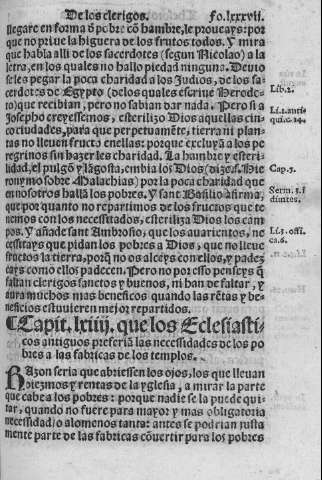 De los clerigos. Fo.lxxxvij.
llegare en forma õ pobre cõ hambre, le proueays: por
que no priue la higuera de los frutos todos. Y mira
que habla alli de los sacerdotes (segun Nicolao) a la
letra, en los quales no hallo piedad ninguna. Deuio
seles pegar la poca charidad a los Judios, de los sa-
cerdotes de Egypto (delos quales escriue Herodo-
to) que recibian, pero no sabian dar nada. Pero si a
Josepho creyessemos, esterilizo Dios aquellas cin-
co ciudades, para que perpetuamẽte, tierra ni plan-
tas no lleuen fructo enellas: porque excluyã a los pe
regrinos sin hazerles charidad. La hambre y esteri-
lidad, el pulgõ y lãgosta, embia los Dios (dize S. Hie
ronymo sobre Malachias) por la poca charidad que
en nosotros hallã los pobres. Y san Basilio afirma,
que por quanto no repartimos de los fructos que te
nemos con los necessitados, esteriliza Dios los cam
pos. Y añade sant Ambrosio, que los auarientos, ne
cessitays que pidan los pobres a Dios, que no lleue
fructos la tierra, porq̃ no os alceys con ellos, y padez
cays como ellos padecen. Pero no por esso penseys q̃
faltan clerigos sanctos y buenos, ni han de faltar, y
aura muchos mas beneficos quando las rẽtas y be-
neficios estuuieren mejor repartidos.
¶Capit. lxiiij, que los Eclesiasti-
cos antiguos preferiã las necessidades de los po
bres a las fabricas de los templos.
RAzon seria que abriessen los ojos, los que lleuan
diezmos y rentas de la yglesia, a mirar la parte
que cabe a los pobres: porque nadie se la puede qui-
tar, quando no fuere para mayor y mas obligatoria
necessidad: o alomenos tanta: antes se podrian justa
mente parte de las fabricas cõuertir para los pobres
Lib.2.
Li.1.anti
qui.c.14.
Cap.3.
Li.3.offi.
ca.6.